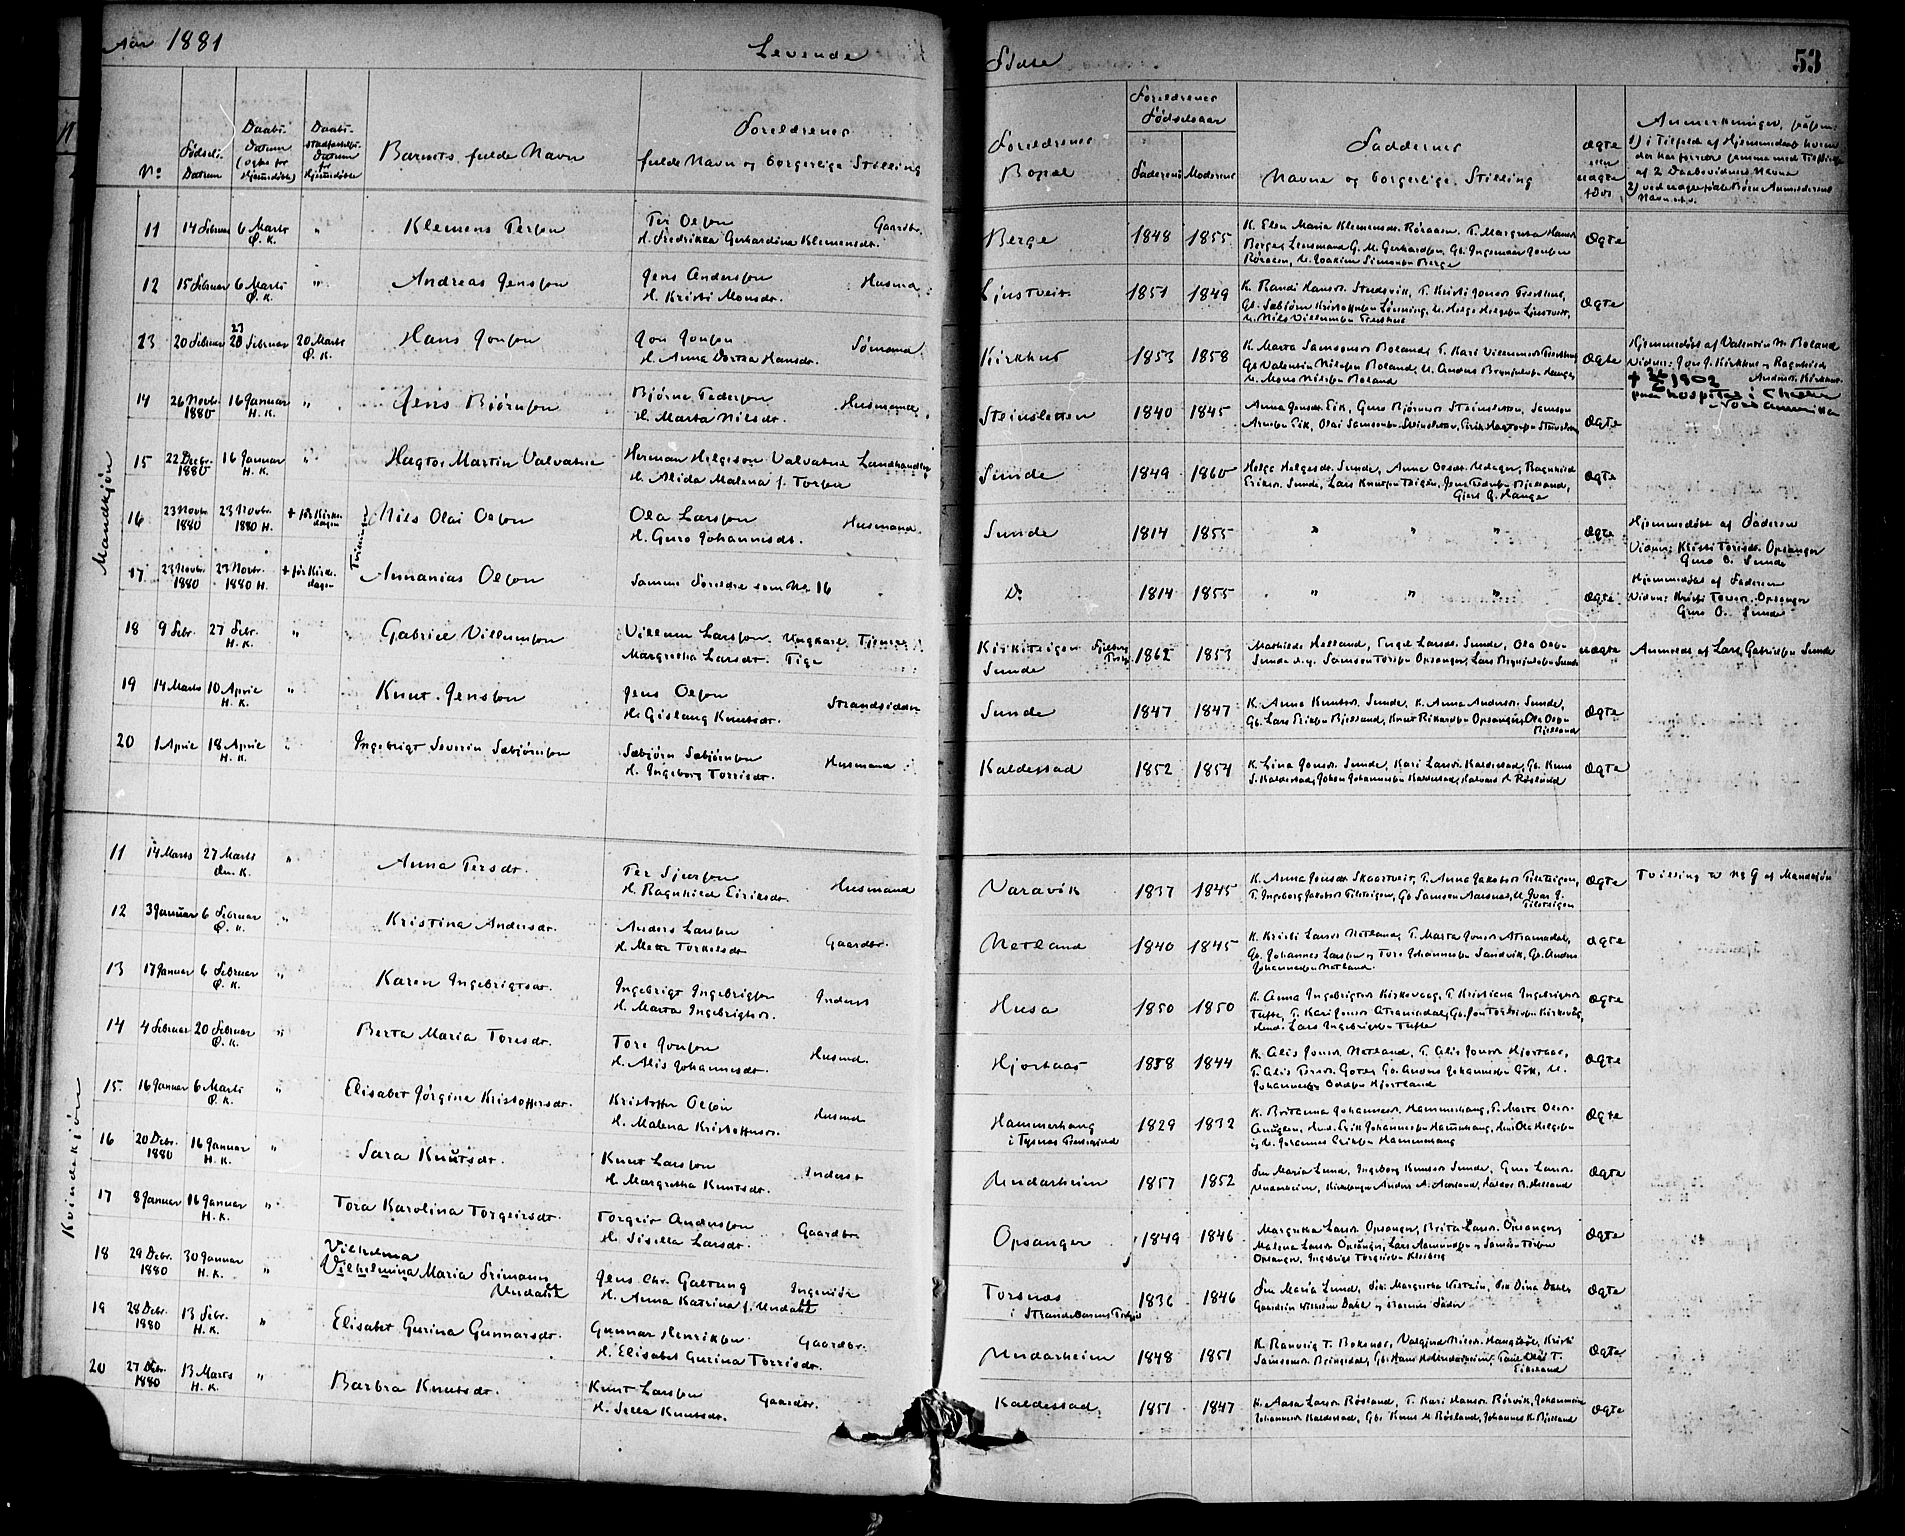 Aar 1881 Levende Fødte 53
No Fødsels-Datum Daabs-Datum (ogsaa for Hjemmedøbte) Daabs-stadfæstelses-Datum for Hjemmedøbte Barnets fulde Navn Forældrenes fulde Navn og borgerlige Stilling
Forældrenes Bopæl Forældrenes Fødselsaar Faderens Moderens Faddernes Navne og borgerlige Stilling ægte eller uægte født Anmerkninger
Mandkjøn
11 14 Februar 6 Marts Ø. K. " Klemens Persen Per Olsen Gaardbr.
H. Fredrikka Gerhardina Klemensdr.
Berge 1848 1855 K. Elen Maria Klemensdr. Røraasen, P. Margreta Hansdr.
Berge, Lensmand G. M. Gerhardsen, Gb. Ingemar Jonsen
Røraasen, U. Joakim Simonsen Berge
Ægte
12 15 Februar 6 Marts Ø. K. " Andreas Jensen Jens Andersen Husmd.
H. Kristi Monsdr.
Ljustveit 1851 1849 K. Randi Hansdr. Stødsvik, P. Kristi Jonsdr.
U. Helge Helgesen Ljustveit,
U. Nils Villumsen
Ægte
13 20 Februar 23 Februar 20 Marts Ø. K. Hans Jonsen Jon Jonsen Sømand
H. Anna Dortea Hansdr.
Kirkhus 1853 1858 K. Marta Samsonsdr. Boland, P. Kari Villumsdr.
Gb. Valentin Nilssen Boland, U. Anders Brynjulvsen Hauge,
U. Mons Nilssen Boland
Ægte Hjemmedøbt af Valentin N. Boland
Vidner: Jon J. Kirkhus og Ragnhild
Anders. Kirkhus.
1902
paa hospital i
Nord Amerika
14 26 Novb. 1880 16 Januar H. K. " Jens Bjørnsen Bjørne Pedersen Husmand
H. Marta Nilsdr.
Steinsletten 1840 1845 Anna Jensdr. Eik, Guro Bjørnsdr. Steinsletten, Samson
Arnesen Eik, Olai Samsonsen Steinsletten,
Ægte
15 22 Decbr. 1880 16 Januar H. K. " Hagtor Martin Valvatne Herman Helgeson Valvatne Landhandler
H. Alida Malena f. Torsen
Sunde 1849 1860 Helge Helgesdr. Sunde, Anna Olsdr. Ragnhild
Eriksdr. Sunde, Lars Knutsen Teigen, Bjelland,
Gjert G. Hauge
Ægte
Tvillinger
16 23 Novbr. 1880 23 Novbr. 1880 H. + før Kirkedagen Nils Olai Olsen Ola Larsen Husmand
H. Guro Johannesdr.
Sunde 1814 1855 " " " Ægte Hjemmedøbt af Faderen
Vidner: Kristi Torisdr. Opsanger
Guro O. Sunde
17 23 Novbr. 1880 23 Novbr. 1880 H. + før Kirkedagen Annanias Olsen Samme Forældre som No 16
Do 1814 1855 " " " Ægte Hjemmedøbt af Faderen
Vidner: Kristi Opsanger
Guro O. Sunde
18 9 Febr. 27 Febr. H. K. " Gabriel Villumsen Villum Larsen Ungkarl Tjener
Margretha Larsdr. Pige
Kirketeigen Sunde 1862 1853 Mathilde Helland, Engel Larsdr. Sunde, Ola Olsen
Sunde d.y. Samson Torsen Opsanger, Lars Brynjulvsen Sunde
uægte Anmeldt af Lars Gabrielsen Sunde
19 14 Marts 10 April H. K. " Knut Jensen Jens Olsen Strandsidder
H. Gislaug Knutsdr.
Sunde 1847 1847 K. Anna Knutsdr. Sunde, K. Anna Andersdr. Sunde,
Gb. Lars Eriksen Bjelland, Knut Rikardsen Opsanger, Ola Olsen
Bjelland
Ægte
20 1 April 18 April H. K. " Ingebrigt Severin Sæbjørnsen Sæbjørn Sæbjørnsen Husmand
H. Ingeborg Torrisdr.
Kaldestad 1852 1854 K. Lina Jonsdr. Sunde, Kari Larsdr. Kaldestad, Gb. Knut
S. Kaldestad, Johan Johannessen Kaldestad, Halvard N. Røsland
Ægte
Kvindekjøn
11 14 Marts 27 Marts K. " Anna Persdr. Per Sjursen Husmand
H. Ragnhild Eiriksdr.
Varavik 1837 1845 K. Anna Jonsdr. Skaartveit, P. Anna Jakobsdr.
P. Ingeborg Jakobsdr. Gb. Samson Aarsnes, U. Ivar J.
Ægte Tvilling til No 9 af Mandkjøn
12 3 Januar 6 Februar Ø. K. " Kristina Andersdr. Anders Larsen Gaardbr.
H. Metta Torkelsdr.
Netland 1840 1845 K. Kristi Larsdr. Netland, P. Marta Jonsdr. Atramadal,
Gb. Johannes Larsen og Tore Johannessen Sandvik, Gb. Anders
Johannessen Netland.
Ægte
13 17 Januar 6 Februar Ø. K. " Karen Ingebrigtsdr. Ingebrigt Ingebrigtsen Inderst
H. Marta Ingebrigtsdr.
Husa 1850 1850 K. Anna Ingebrigtsdr. Kirkevaag, P. Kristiana Ingebrigtsdr.
Tufte, P. Kari Jonsdr. Atramadal, Gb. Jon Kirkevaag,
Lars Ingebrigtsen Tufte
Ægte
14 4 Februar 20 Februar Ø. K. " Berta Maria Toresdr. Tore Jonsen Husmd.
H. Alis Johannesdr.
Hjortaas 1858 1844 K. Alis Jonsdr. Netland, P. Alis Jonsdr. Hjortaas,
P. Alis Gb. Anders Johannessen Eik, U.
Johannessen Hjortland
Ægte
15 16 Januar 6 Marts Ø. K. " Elisabet Jørgine Kristoffersdr. Kristoffer Olsen Husmd
H. Malena Kristoffersdr.
Hammerhaug i Tysnes Præstegjeld 1829 1832 K. Britanna Johannesdr. Hammerhaug, P. Marta Olsdr.
Erik Johannessen Hammerhaug, Ola Helgesen
og U. Johannes Eriksen Hammerhaug
Ægte
16 20 Debr. 1880 16 Januar H. K. " Sara Knutsdr. Knut Larsen Inderst
H. Margretha Knutsdr.
Undarheim 1857 1852 Fru Maria Lund, Ingeborg Knutsdr. Sunde, Guro Larsdr.
Undarheim, Kirkesanger Anders A. Aarland, Helland
Ægte
17 8 Januar 16 Januar H. K. " Tora Karolina Torgeirsdr. Torgeir Andersen Gaardbr.
H. Sisella Larsdr.
Opsanger 1849 1846 Margretha Larsdr. Opsanger, Brita Larsdr. Opsanger,
Malena Larsdr. Opsanger, Lars Aamundsen og Samson Torsen
Opsanger, Ingebrigt Torgeirsen Kleiberg
Ægte
18 29 Debr. 1880 30 Januar H. K. " Vilhelma
Vilhelmina Maria Freimann
Undahl
Jens Chr. Galtung Ingeniør
H. Anna Katrina f. Undahl
Torsnæs i Strandebarms Prstgjd 1836 1846 Fru Maria Lund, Frk. Margretha Fru Dina Dahl,
Gaardbr. Wilhelm Dahl og Barnets Fader
Ægte
19 28 Debr. 1880 13 Febr. H. K. " Elisabet Gurina Gunnarsdr. Gunnar Henriksen Gaardbr.
H. Elisabet Gurina Torrisdr.
Undarheim 1848 1851 K. Rannveig T. Bokenes, Valgjerd Nilsdr. Haugstøl, Kristi
Samsonsdr. Gb. Hans Undarheim, Paul Olai T.
Ægte
20 27 Debr. 1880 13 Marts H. K. " Barbra Knutsdr. Knut Larsen Gaardbr.
H. Sella Knutsdr.
Kaldestad 1851 1847 K. Aasa Larsdr. Røsland, P. Kari Hansdr. Rørvik, Johannes
Johannessen Kaldestad, Gb. Knut N. Røsland, Johannes K. Bjelland
Ægte